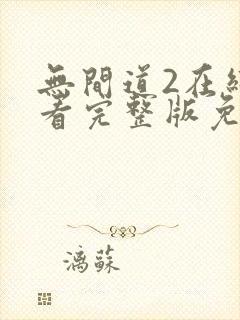 無間道2在線
看完整版免
漓蘇